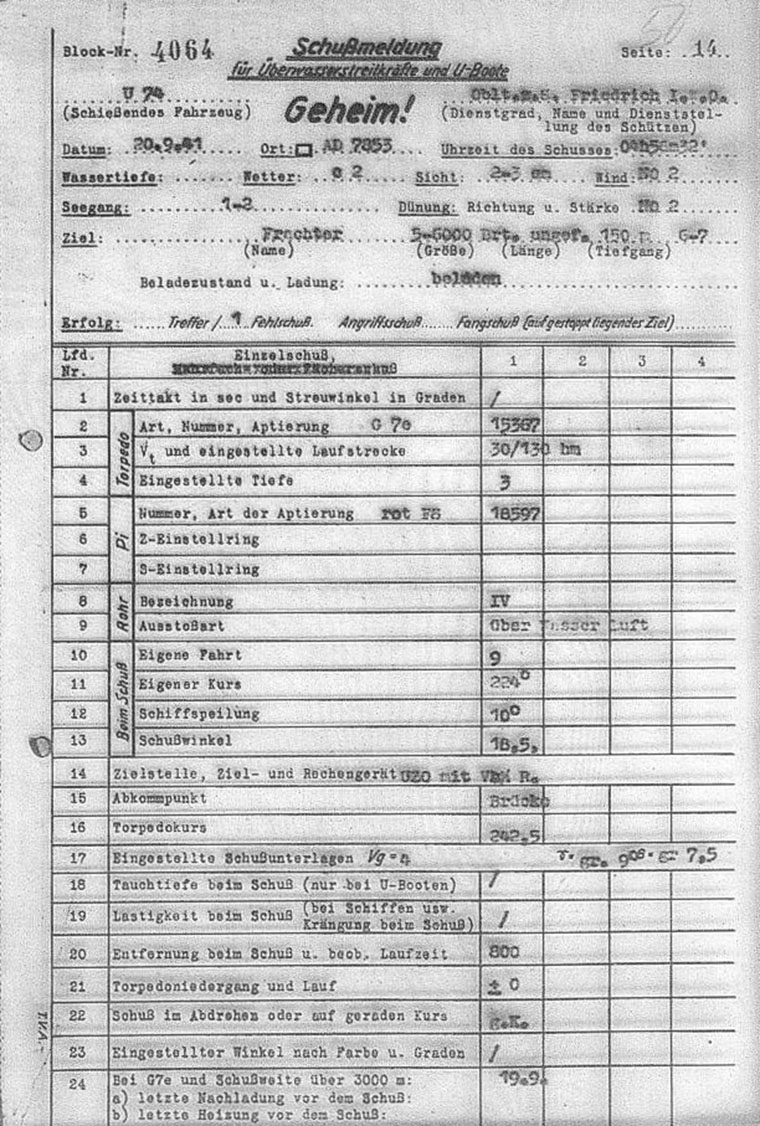 Block-Nr. 4064 Schußmeldung Seite: 14
für Überwasserstreitkräfte und U-Boote
U 74 Geheim! Oblt.z.S. Friedrich I.W.O.
(Schießendes Fahrzeug) (Dienstgrad, Name und Dienststel-
lung des Schützen)
Datum: 20.9.41 Ort: AD 7853 Uhrzeit des Schusses:
Wassertiefe: Wetter: 2 Sicht: 2-3 sm Wind: NO 2
Seegang: 1-2 Dünung: Richtung u. Stärke NO 2
Ziel: Frachter 5-6000 Brt. ungef. 150 m 6-7
(Name) (Größe) (Länge) (Tiefgang)
Beladezustand u. Ladung: beladen
Erfolg: Treffer / 1 Fehlschuß. Angriffsschuß Fangschuß (auf gestoppt liegendes Ziel)
Lfd. Nr. Einzelschuß, 1 2 3 4
1 Zeittakt in sec und Streuwinkel in Graden /
Torpedo
2 Art, Nummer, Aptierung G 7e 15367
3 Vt und eingestellte Laufstrecke 30/130 hm
4 Eingestellte Tiefe 3
Pi
5 Nummer, Art der Aptierung rot FS 18597
6 Z-Einstellring
7 S-Einstellring
Rohr
8 Bezeichnung IV
9 Ausstoßart Über Wasser Luft
Beim Schuß
10 Eigene Fahrt 9
11 Eigener Kurs 224°
12 Schiffspeilung 10°
13 Schußwinkel 18,5,
14 Zielstelle, Ziel- und Rechengerät UZO mit R.
15 Abkommpunkt Brücke
16 Torpedokurs 242,5
17 Eingestellte Schußunterlagen Vg = 4 gr. 7,5
18 Tauchtiefe beim Schuß (nur bei U-Booten) /
19 Lastigkeit beim Schuß (bei Schiffen usw.
Krängung beim Schuß) /
20 Entfernung beim Schuß u. beob. Laufzeit 800
21 Torpedoniedergang und Lauf ± 0
22 Schuß im Abdrehen oder auf geraden Kurs g.K.
23 Eingestellter Winkel nach Farbe u. Graden /
24 Bei G7e und Schußweite über 3000 m: 19.9.
a) letzte Nachladung vor dem Schuß:
b) letzte Heizung vor dem Schuß: